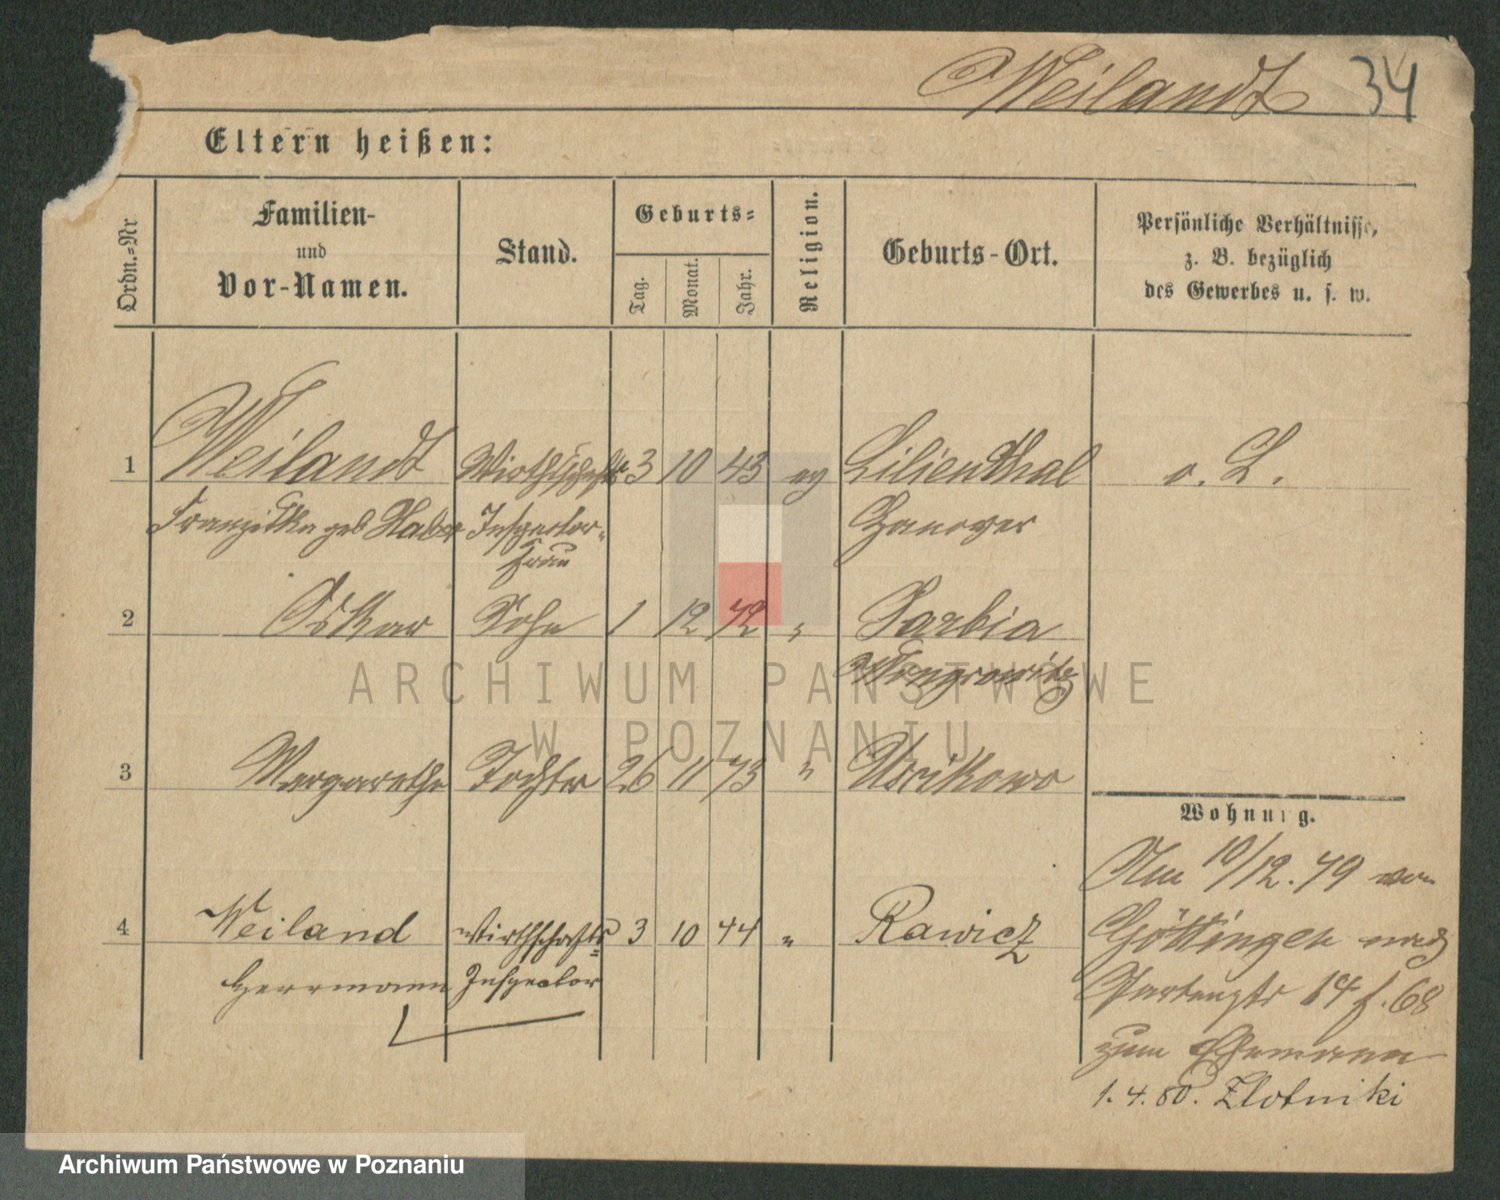 Weilandt 34
Eltern heißen:
Ordn.=Nr
Familien-
und
Vor-Namen.
Stand.
Geburts=
Tag.
Monat.
Jahr.
Religion.
Geburts-Ort.
Persönliche Verhältnisse,
z. B. bezüglich
des Gewerbes u. s. w.
1 Weilandt Wirthschafts 3 10 43 ev Lilienthal o. L.
Franziska geb Inspector- Hanover
frau
2 Oskar Sohn 1 12 72 " Sarbia
Wongrowitz
3 Margarethe Tochter 26 11 73 "
Wohnung.
Am 10/12. 79 von
4 Weiland Wirthschafts 3 10 44 " Rawicz Göttingen nach
Herrmann Inspector Gartenstr 14 b. 68
zum Ehemann
1. 4. 80. Zlotniki
ARCHIWUM PAŃSTWOWE
W POZNANIU
Archiwum Państwowe w Poznaniu